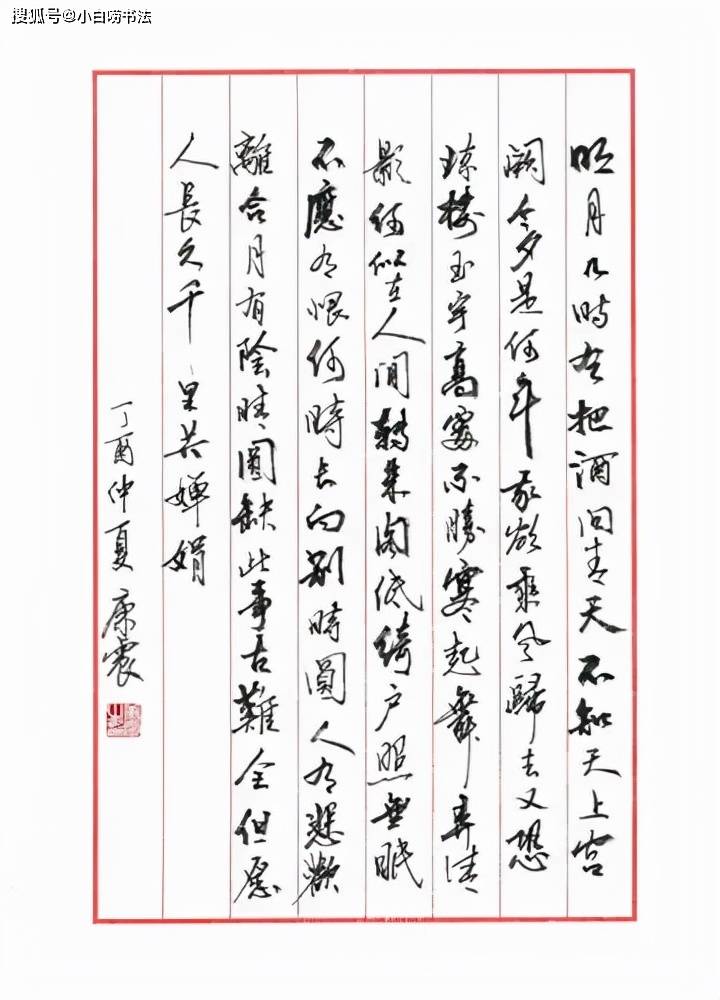 搜狐号@小白唠书法
明月几時有把酒問青天不知天上宮
闕今夕是何年我欲乘風歸去又恐
瓊樓玉宇高處不勝寒起舞弄清
影何似在人間轉朱閣低綺戶照無眠
不應有恨何時長向別時圓人有悲歡
離合月有陰晴圓缺此事古難全但願
人長久千里共嬋娟
丁酉仲夏 康震